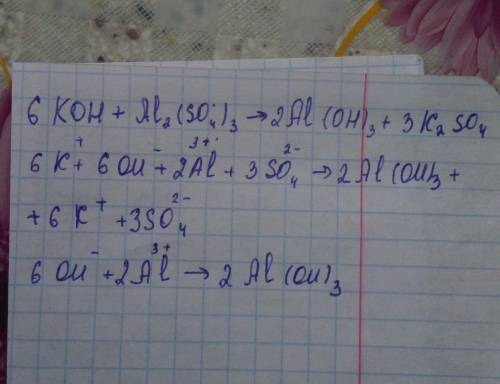 6 KOH + Al₂(SO₄)₃ → 2Al(OH)₃ + 3K₂SO₄
6K⁺ + 6OH⁻ + 2Al³⁺ + 3SO₄²⁻ → 2Al(OH)₃ +
+ 6K⁺ + 3SO₄²⁻
6OH⁻ + 2Al³⁺ → 2Al(OH)₃